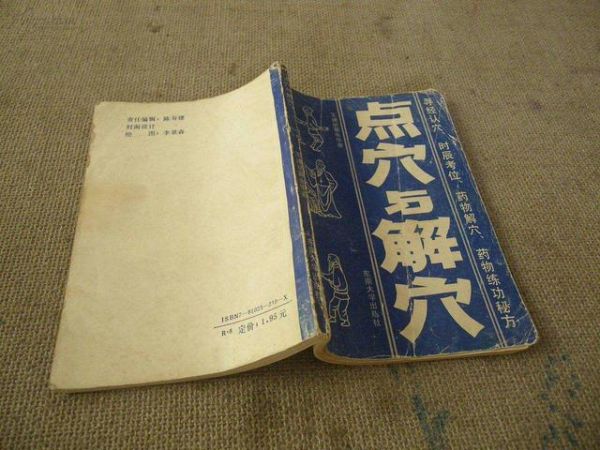 寻经认穴、时辰考位、药物解穴、药物练功秘方
点穴与解穴
东南大学出版社
责任编辑：陈寿楗
封面设计
绘 图：李景森
ISBN7-81023-210-X
R·8 定价：1.95元